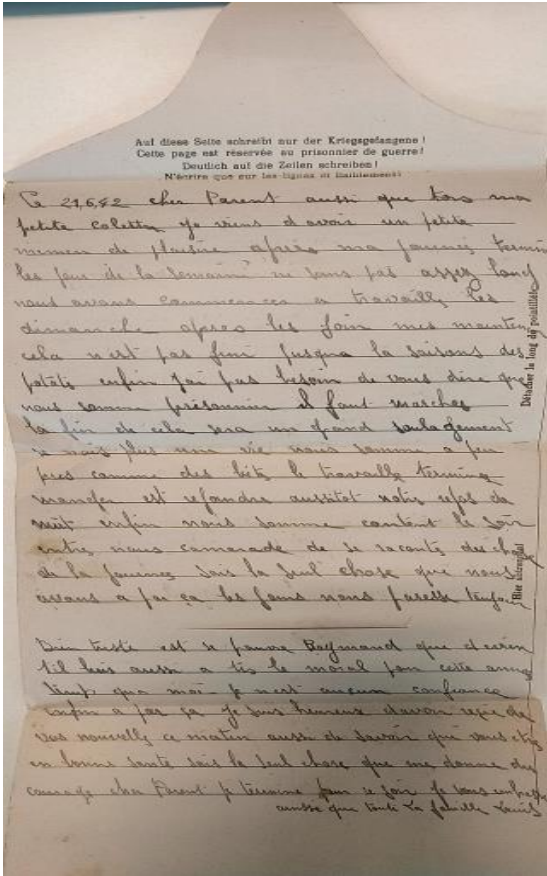 Auf diese Seite schreibt nur der Kriegsgefangene!
Cette page est réservée au prisonnier de guerre!
Deutlich auf die Zeilen schreiben!
N'écrire que sur les lignes et lisiblement!
Ce 21,6,42 cher Parent aussi que tois ma
petite colette je viens d avoir un petite
momen de plaisire après ma journes termin
les jour de la semaine ne sons pas assez long
nous avons commences a travaille les
dimanche apres les foin mes mainten
cela n est pas fini jusqua la saisons des
patate enfin jai pas besoin de vous dire que
nous somme prisonnier il faut marcher
la fin de cela sera un grand soulagement
se nais plus une vie nous somme a peu
pres comme des bete le travaille termine
manger est refandre aussitot notre repos de
nuit enfin nous somme content le soir
entre nous camarade de se raconte des chos
de la journes sais la seul chose que nous
avons a par ça les jours nous paresse toujour
Bien triste est se pauvre Raymond que
til luis aussi a le moral pour cette anne
tendis qua moi je n est aucun confiance
enfin a par ça je suis heureux davoir reçu de
vos nouvelle ce matin aussi de savoir que vous etes
en bonne sante sais la seul chose que me donne du
courage cher Parent je termine pour ce soir je vous embrasse
ainsse que toute la famille Louis
Détacher le long du pointillé
Hier abtrennen!